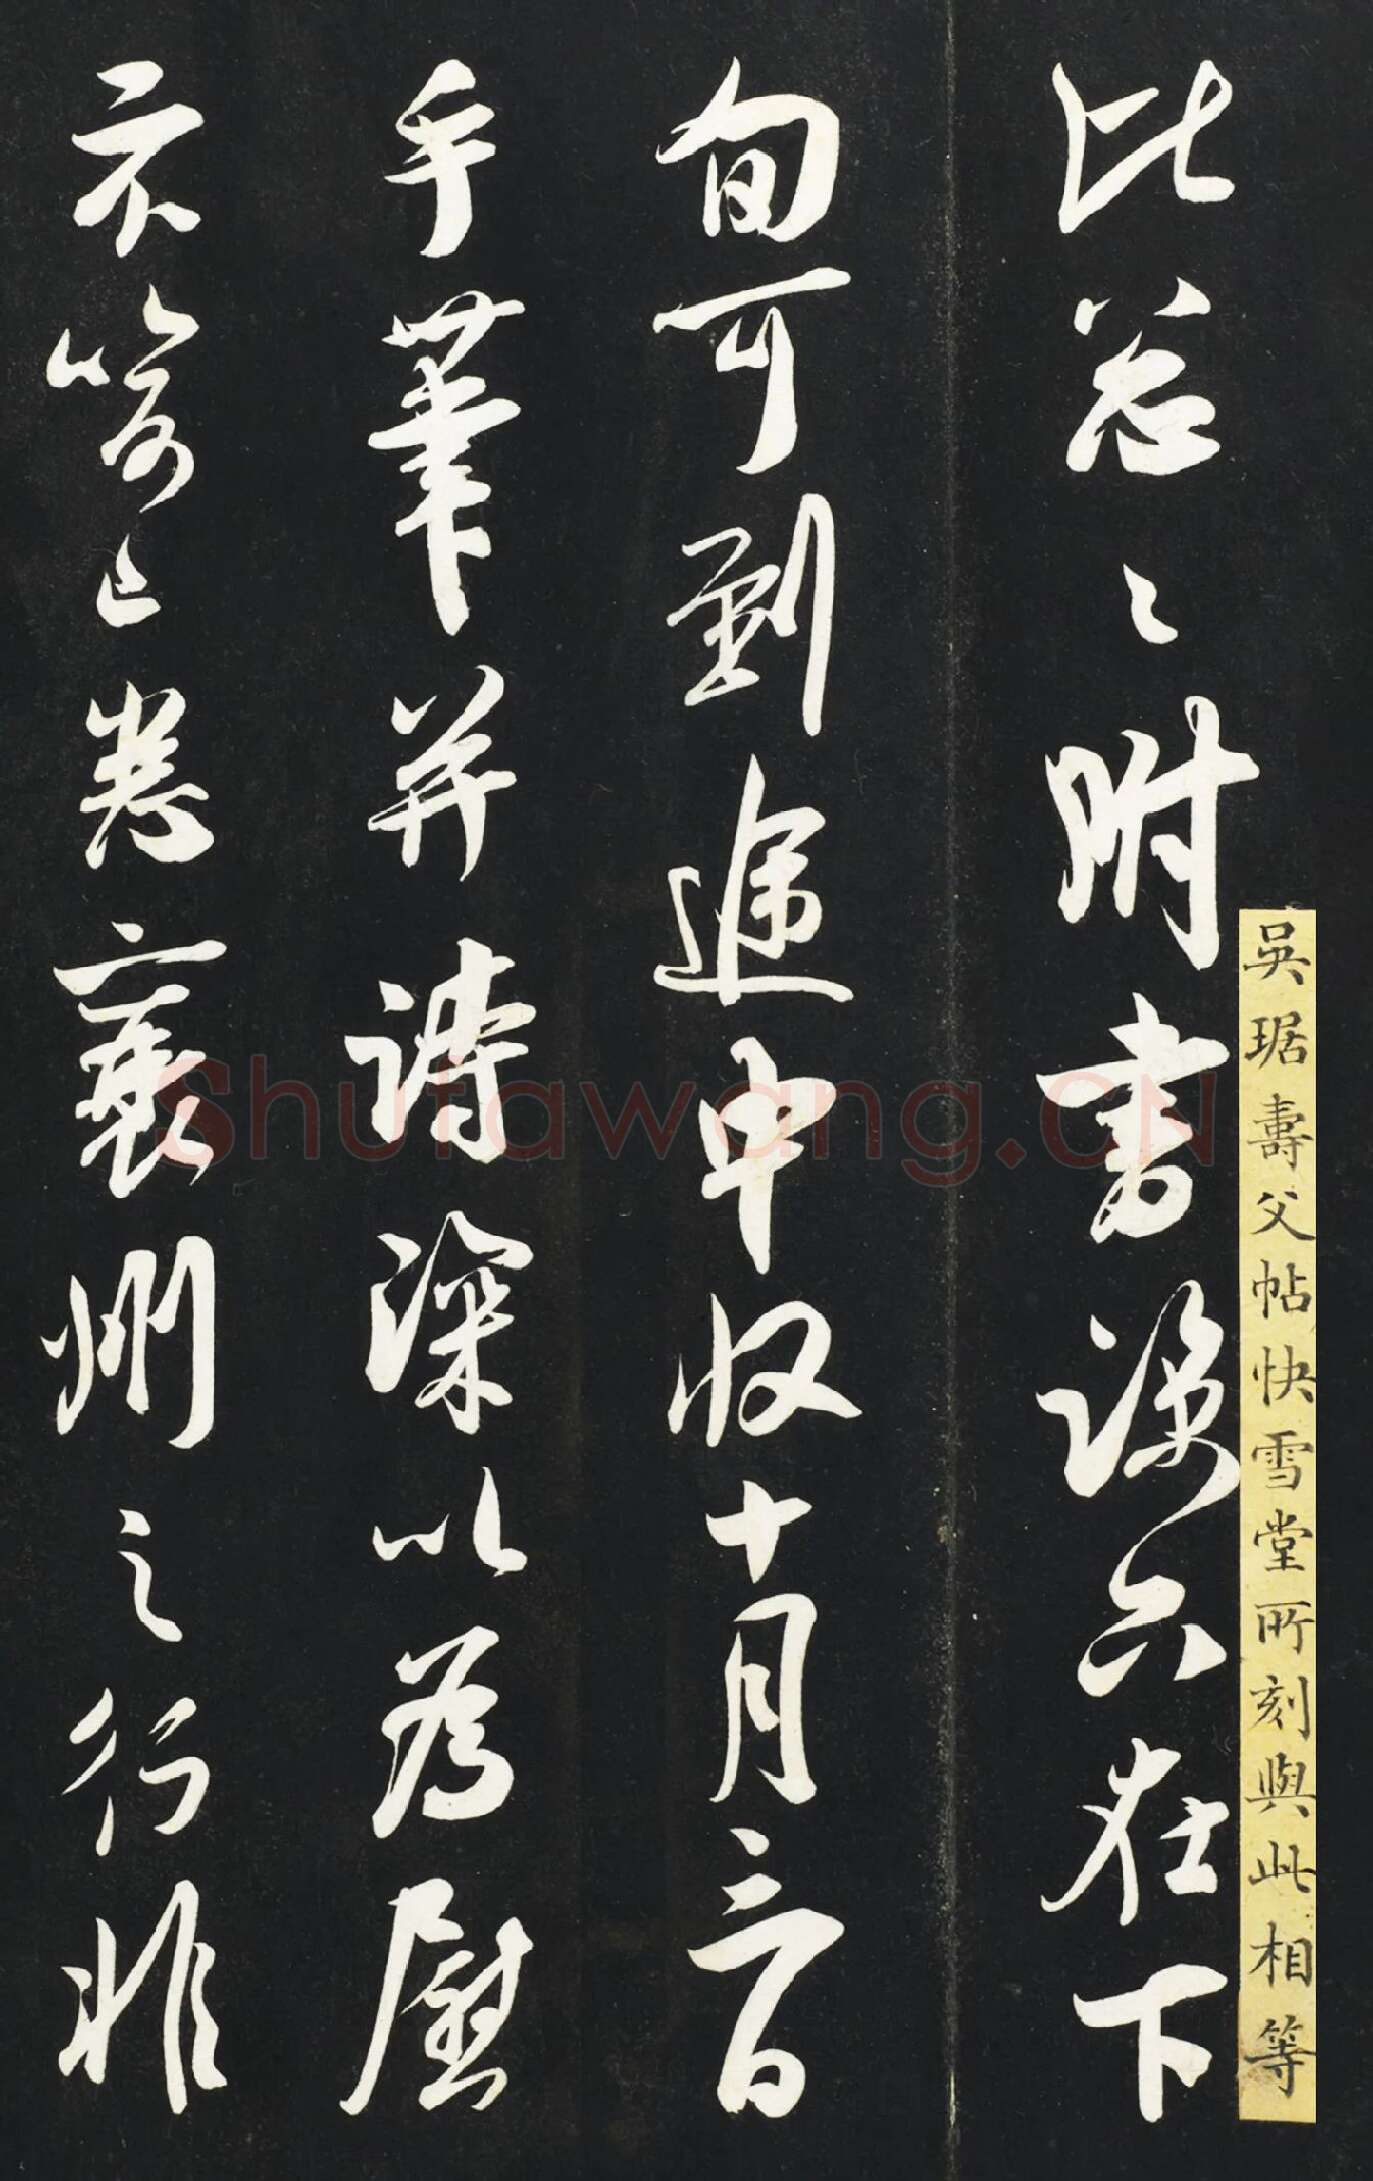 吳琚壽父帖快雪堂所刻與此相等
比怱〻附書諒只在下
旬可到遞中收十月三日
手筆并詩深以為慰
示喻已悉襄州之行非
Shufawang.CN